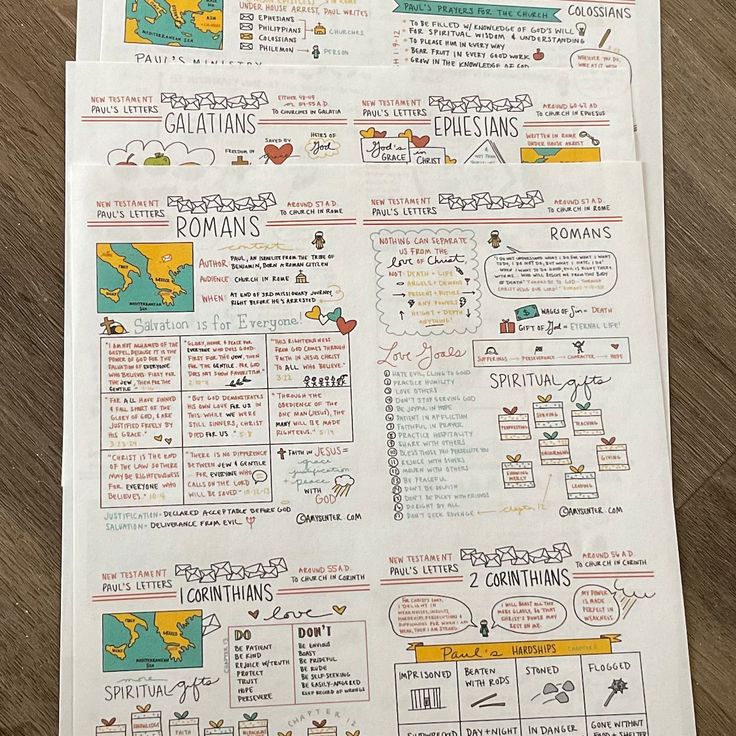 UNDER HOUSE ARREST, PAUL WRITES
EPHESIANS
PHILIPPIANS
COLOSSIANS
PHILEMON
CHURCHES
PERSON
ASIA
MEDITERRANEAN SEA
PAUL'S MINISTRY
PAUL'S PRAYERS FOR THE CHURCH
COLOSSIANS
TO BE FILLED W/ KNOWLEDGE OF GOD'S WILL
FOR SPIRITUAL WISDOM & UNDERSTANDING
TO PLEASE HIM IN EVERY WAY
BEAR FRUIT IN EVERY GOOD WORK
GROW IN THE KNOWLEDGE OF GOD
NEW TESTAMENT
PAUL'S LETTERS
GALATIANS
EITHER 48-49
or 54-55 A.D.
TO CHURCHES IN GALATIA
FREEDOM IN
SAVED BY
grace
HEIRS OF
God
NEW TESTAMENT
PAUL'S LETTERS
EPHESIANS
AROUND 60-62 AD
TO CHURCH IN EPHESUS
God's
GRACE
IN CHRIST
WRITTEN IN ROME
UNDER HOUSE ARREST
NEW TESTAMENT
PAUL'S LETTERS
ROMANS
AROUND 57 A.D.
TO CHURCH IN ROME
context
ITALY
GREECE
MEDITERRANEAN SEA
AUTHOR: PAUL, AN ISRAELITE FROM THE TRIBE OF
BENJAMIN, BORN A ROMAN CITIZEN
AUDIENCE: CHURCH IN ROME
WHEN: AT END OF 3RD MISSIONARY JOURNEY,
RIGHT BEFORE HE'S ARRESTED
Salvation is for Everyone!
"I AM NOT ASHAMED OF THE
GOSPEL, BECAUSE IT IS THE
POWER OF GOD FOR THE
SALVATION OF EVERYONE
WHO BELIEVES: FIRST FOR
THE JEW, THEN FOR THE
GENTILE"
"GLORY, HONOR & PEACE FOR
EVERYONE WHO DOES GOOD:
FIRST FOR THE JEW, THEN
FOR THE GENTILE. FOR GOD
DOES NOT SHOW FAVORITISM."
2:10-11
"THIS RIGHTEOUSNESS
FROM GOD COMES THROUGH
FAITH IN JESUS CHRIST
TO ALL WHO BELIEVE."
3:22
"FOR ALL HAVE SINNED
& FALL SHORT OF THE
GLORY OF GOD, & ARE
JUSTIFIED FREELY BY
HIS GRACE."
3:23-24
"BUT GOD DEMONSTRATES
HIS OWN LOVE FOR US IN
THIS: WHILE WE WERE
STILL SINNERS, CHRIST
DIED FOR US." 5:8
"THROUGH THE
OBEDIENCE OF THE
ONE MAN (JESUS), THE
MANY WILL BE MADE
RIGHTEOUS." 5:19
"CHRIST IS THE END
OF THE LAW SO THERE
MAY BE RIGHTEOUSNESS
FOR EVERYONE WHO
BELIEVES." 10:4
"THERE IS NO DIFFERENCE
BETWEEN JEW & GENTILE
- FOR EVERYONE WHO
CALLS ON THE LORD
WILL BE SAVED" 10:12-13
FAITH IN JESUS =
grace
justification
+ peace
WITH
GOD
JUSTIFICATION: DECLARED ACCEPTABLE BEFORE GOD
SALVATION: DELIVERANCE FROM EVIL
NEW TESTAMENT
PAUL'S LETTERS
AROUND 57 A.D.
TO CHURCH IN ROME
ROMANS
NOTHING CAN SEPARATE
US FROM THE
love of Christ
NOT: DEATH + LIFE
ANGELS + DEMONS
PRESENT + FUTURE
ANY POWERS
HEIGHT + DEPTH
ANYTHING!
WAGES OF Sin = DEATH
GIFT OF God = ETERNAL LIFE!
SUFFERING
PERSEVERANCE
CHARACTER
HOPE
Love Goals
1 HATE EVIL, CLING TO GOOD
2 PRACTICE HUMILITY
3 LOVE OTHERS
4 DON'T STOP SERVING GOD
5 BE JOYFUL IN HOPE
6 PATIENT IN AFFLICTION
7 FAITHFUL IN PRAYER
8 PRACTICE HOSPITALITY
9 SHARE WITH OTHERS
10 BLESS THOSE YOU PERSECUTE YOU
11 REJOICE WITH OTHERS
12 MOURN WITH OTHERS
13 BE PEACEFUL
14 DON'T BE SELFISH
15 DON'T BE PICKY WITH FRIENDS
16 DO RIGHT BY ALL
17 DON'T SEEK REVENGE
chapter 12
SPIRITUAL gifts
PROPHESYING
SERVING
TEACHING
ENCOURAGING
GIVING
SHOWING
MERCY
LEADING
©AMYSENTER.COM
©AMYSENTER.COM
NEW TESTAMENT
PAUL'S LETTERS
1 CORINTHIANS
AROUND 55 A.D.
TO CHURCH IN CORINTH
ITALY
GREECE
MEDITERRANEAN SEA
love
CHAPTER 13
DO
BE PATIENT
BE KIND
REJOICE W/TRUTH
PROTECT
TRUST
HOPE
PERSEVERE
DON'T
BE ENVIOUS
BOAST
BE PRIDEFUL
BE RUDE
BE SELF-SEEKING
BE EASILY-ANGERED
KEEP RECORD OF WRONGS
more
SPIRITUAL gifts
CHAPTER 12
KNOWLEDGE
FAITH
NEW TESTAMENT
PAUL'S LETTERS
2 CORINTHIANS
AROUND 56 A.D.
TO CHURCH IN CORINTH
FOR CHRIST'S SAKE,
I DELIGHT IN
WEAKNESSES, INSULTS,
HARDSHIPS, PERSECUTIONS &
DIFFICULTIES FOR WHEN I AM
WEAK, THEN I AM STRONG.
I WILL BOAST ALL THE
MORE GLADLY, SO THAT
CHRIST'S POWER MAY
REST ON ME.
MY POWER
IS MADE
PERFECT IN
WEAKNESS.
Paul's HARDSHIPS
IMPRISONED
BEATEN
WITH RODS
STONED
FLOGGED
SHIPWRECKED
DAY + NIGHT
IN DANGER
GONE WITHOUT
FOOD + SHELTER